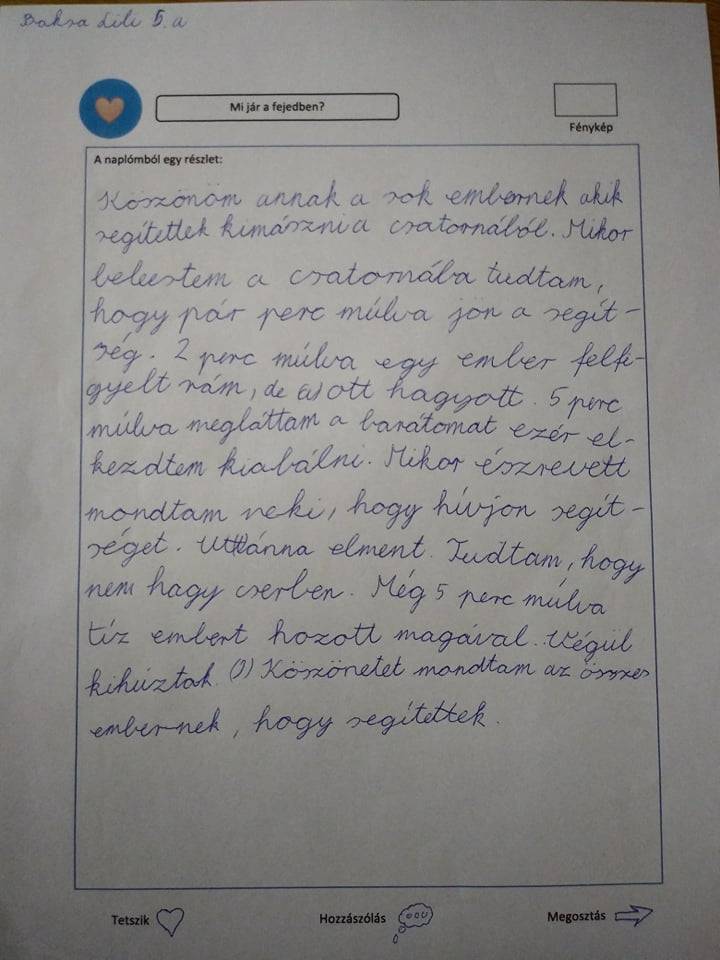 Baksa Lili 5. a
Mi jár a fejedben?
Fénykép
A naplómból egy részlet:
Köszönöm annak a sok embernek akik
segítettek kimászni a csatornából. Mikor
beleestem a csatornába tudtam,
hogy pár perc múlva jön a segít-
ség. 2 perc múlva egy ember felfi-
gyelt rám, de ott hagyott. 5 perc
múlva megláttam a barátomat ezér el-
kezdtem kiabálni. Mikor észrevett
mondtam neki, hogy hívjon segít-
séget. Uttánna elment. Tudtam, hogy
nem hagy cserben. Még 5 perc múlva
tíz embert hozott magával. Végül
kihúztak. Köszönetet mondtam az összes
embernek, hogy segítettek.
Tetszik Hozzászólás Megosztás